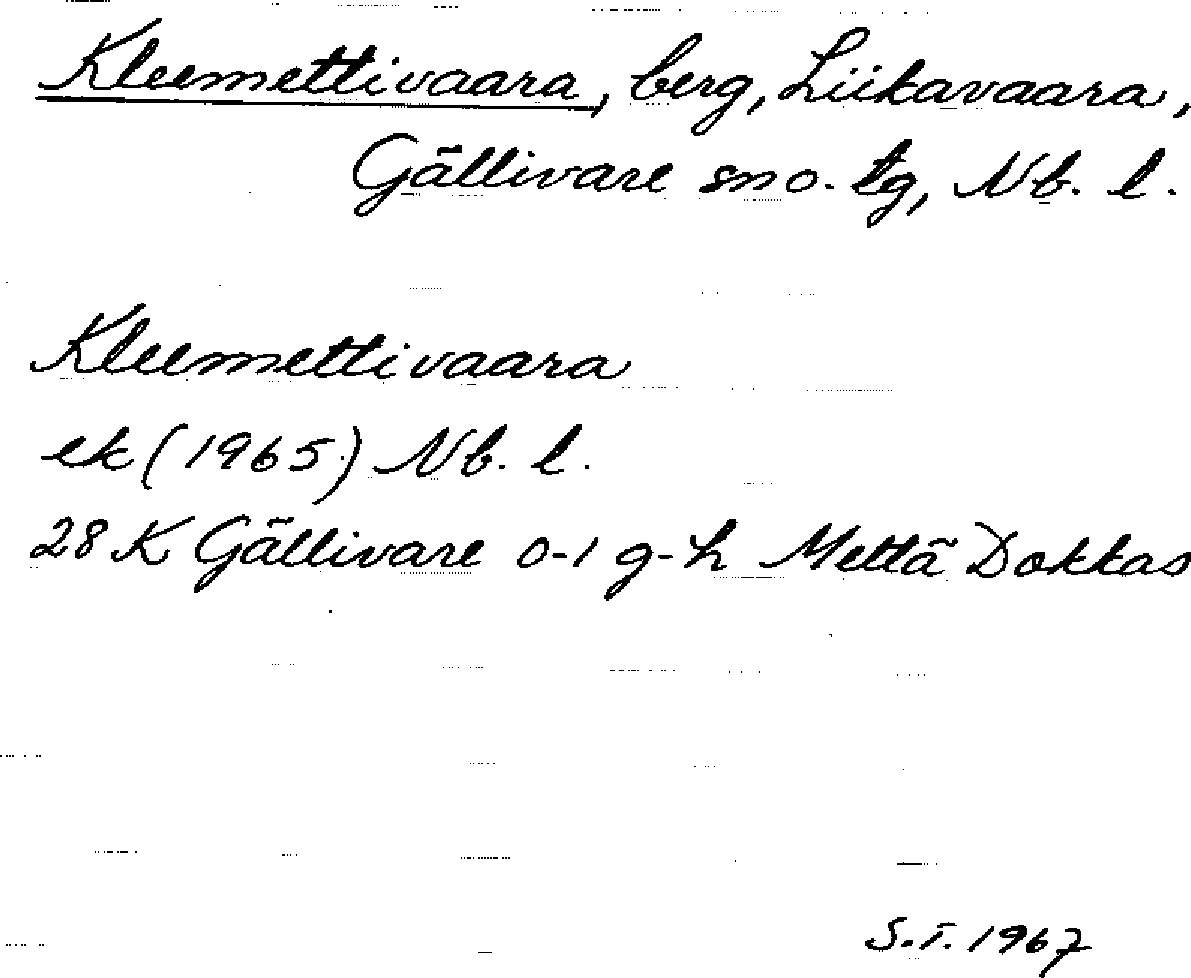 Kleemettivaara, berg, Liikavaara,
Gällivare sn o. tg, Nb. l.
Kleemettivaara
ek (1965) Nb. l.
28 K Gällivare 0-1 g-h Mettä Dokkas
S.T. 1967